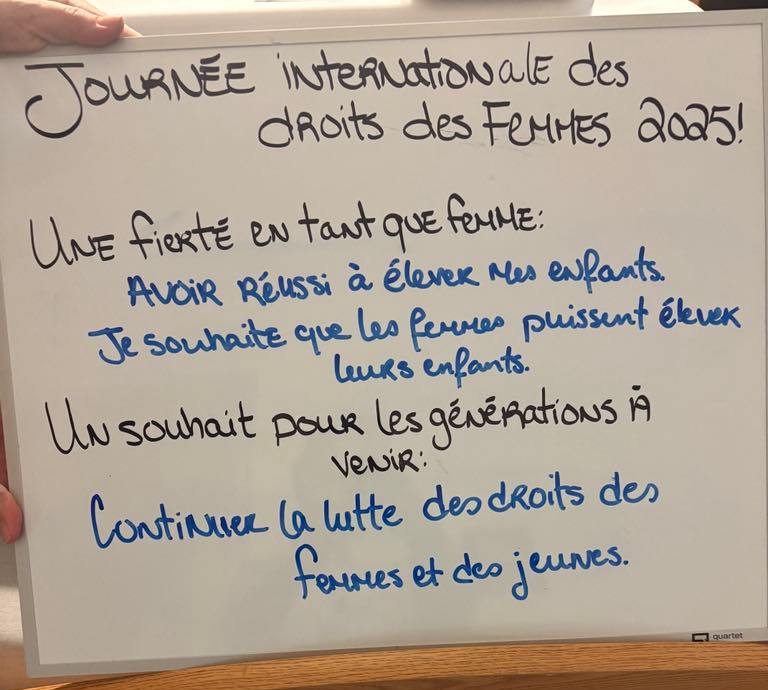 JOURNÉE INTERNATIONALE des
dROits des FEMMES 2025!
UNE fiERTÉ EN tANt QUE fEMME:
AVOIR RÉUSSi à élever mes enfants.
Je souhaite que les femmes puissent élever
leurs enfants.
UN souhait pour les générations À
VENIR:
Continuer la lutte des droits des
femmes et des jeunes.
quartet